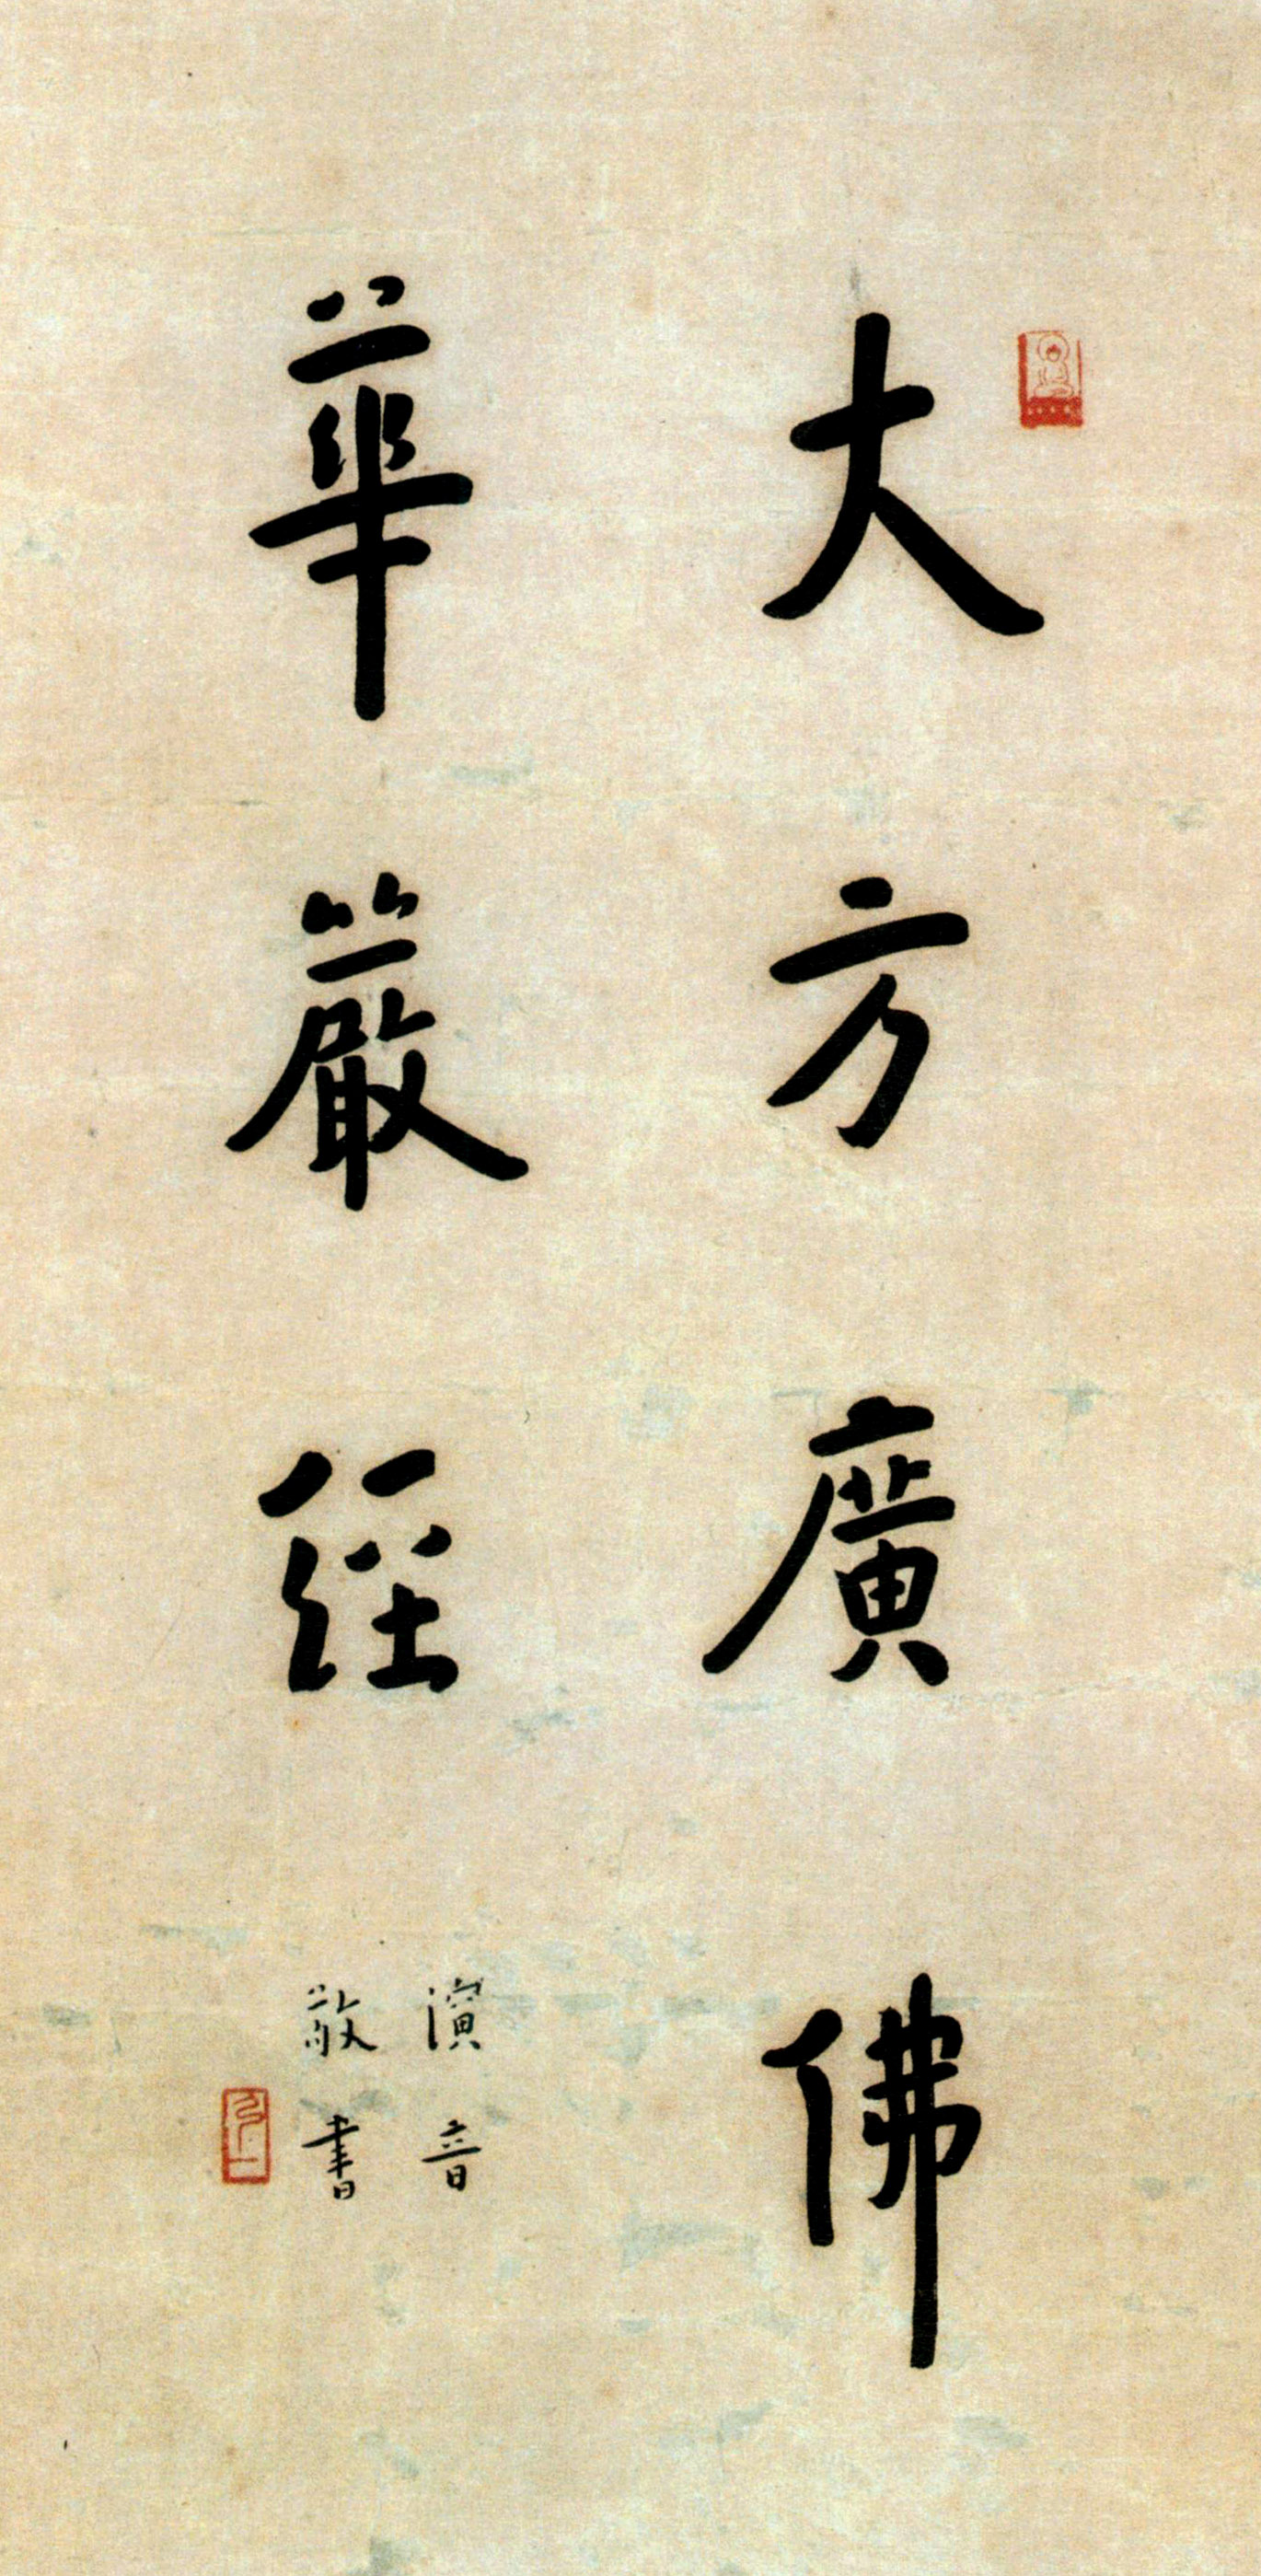 大方廣佛
華嚴經
演音
敬書
弘一